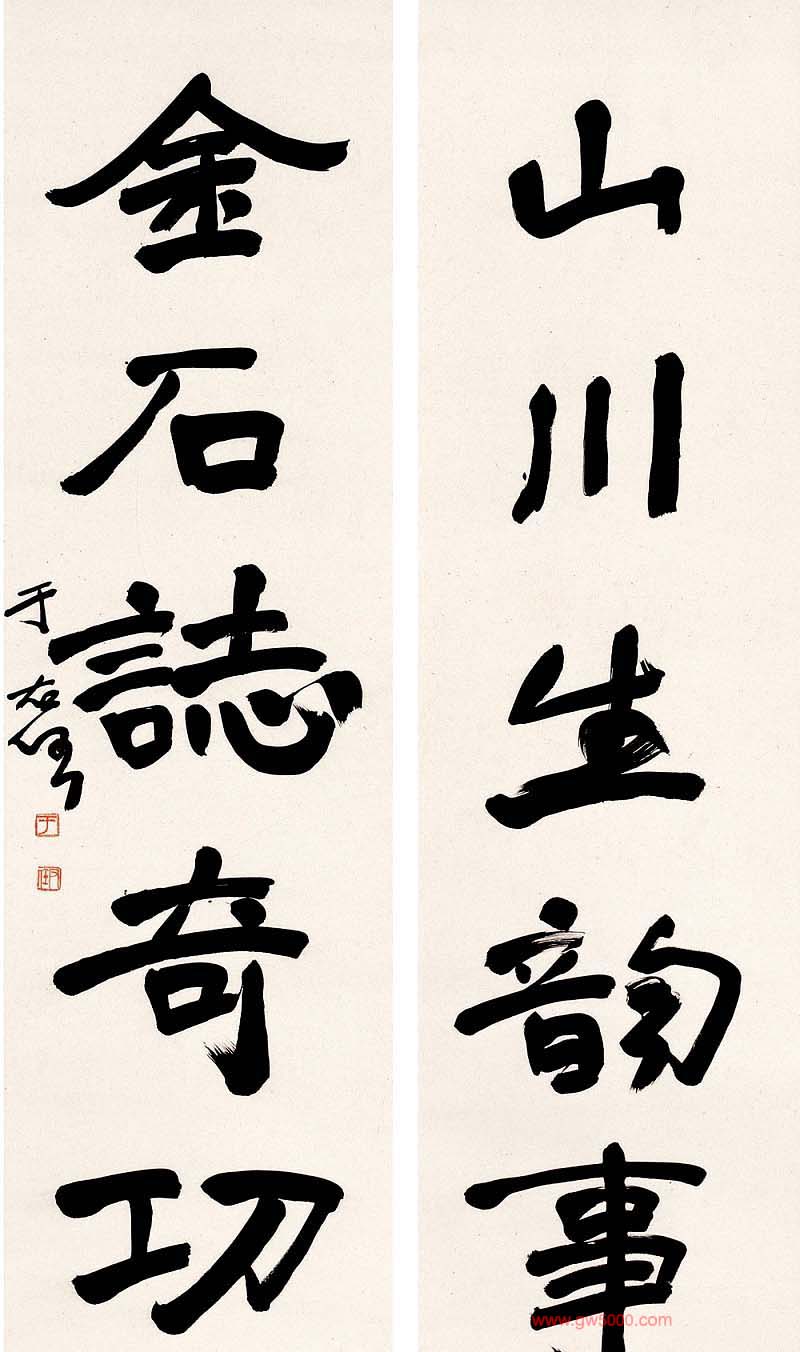 山川生韵事
金石誌奇功
于右任
于
www.gw5000.com